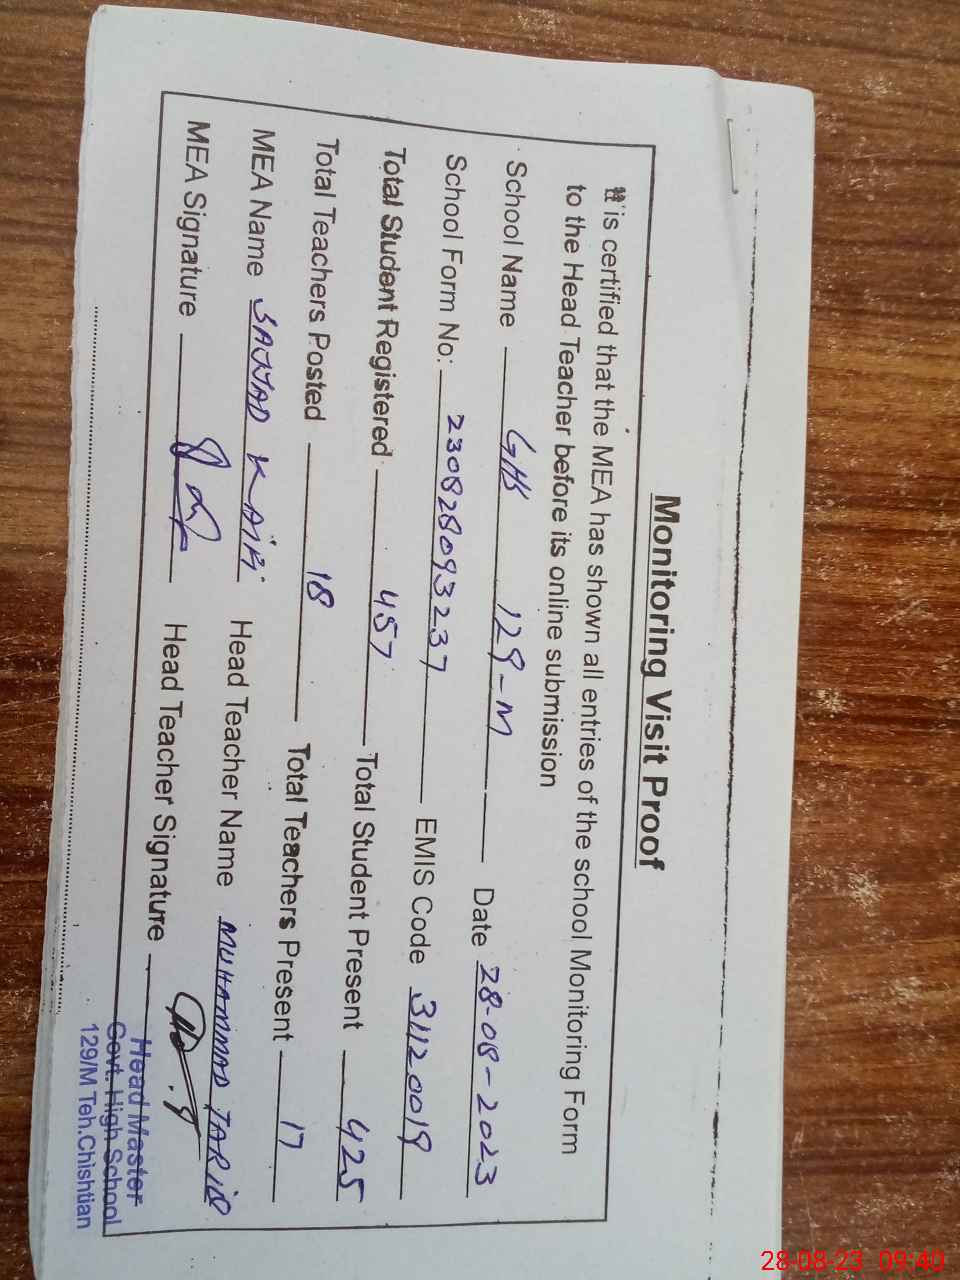 Monitoring Visit Proof
It is certified that the MEA has shown all entries of the school Monitoring Form
to the Head Teacher before its online submission
School Name GHS 129-M Date 28-08-2023
School Form No: 230828093237 EMIS Code 31120019
Total Student Registered 457 Total Student Present 425
Total Teachers Posted 18 Total Teachers Present 17
MEA Name SAJJAD Head Teacher Name MUHAMMAD TARIQ
MEA Signature Head Teacher Signature
Head Master
Govt. High School
129/M Teh.Chishtian
28-08-23 09:40